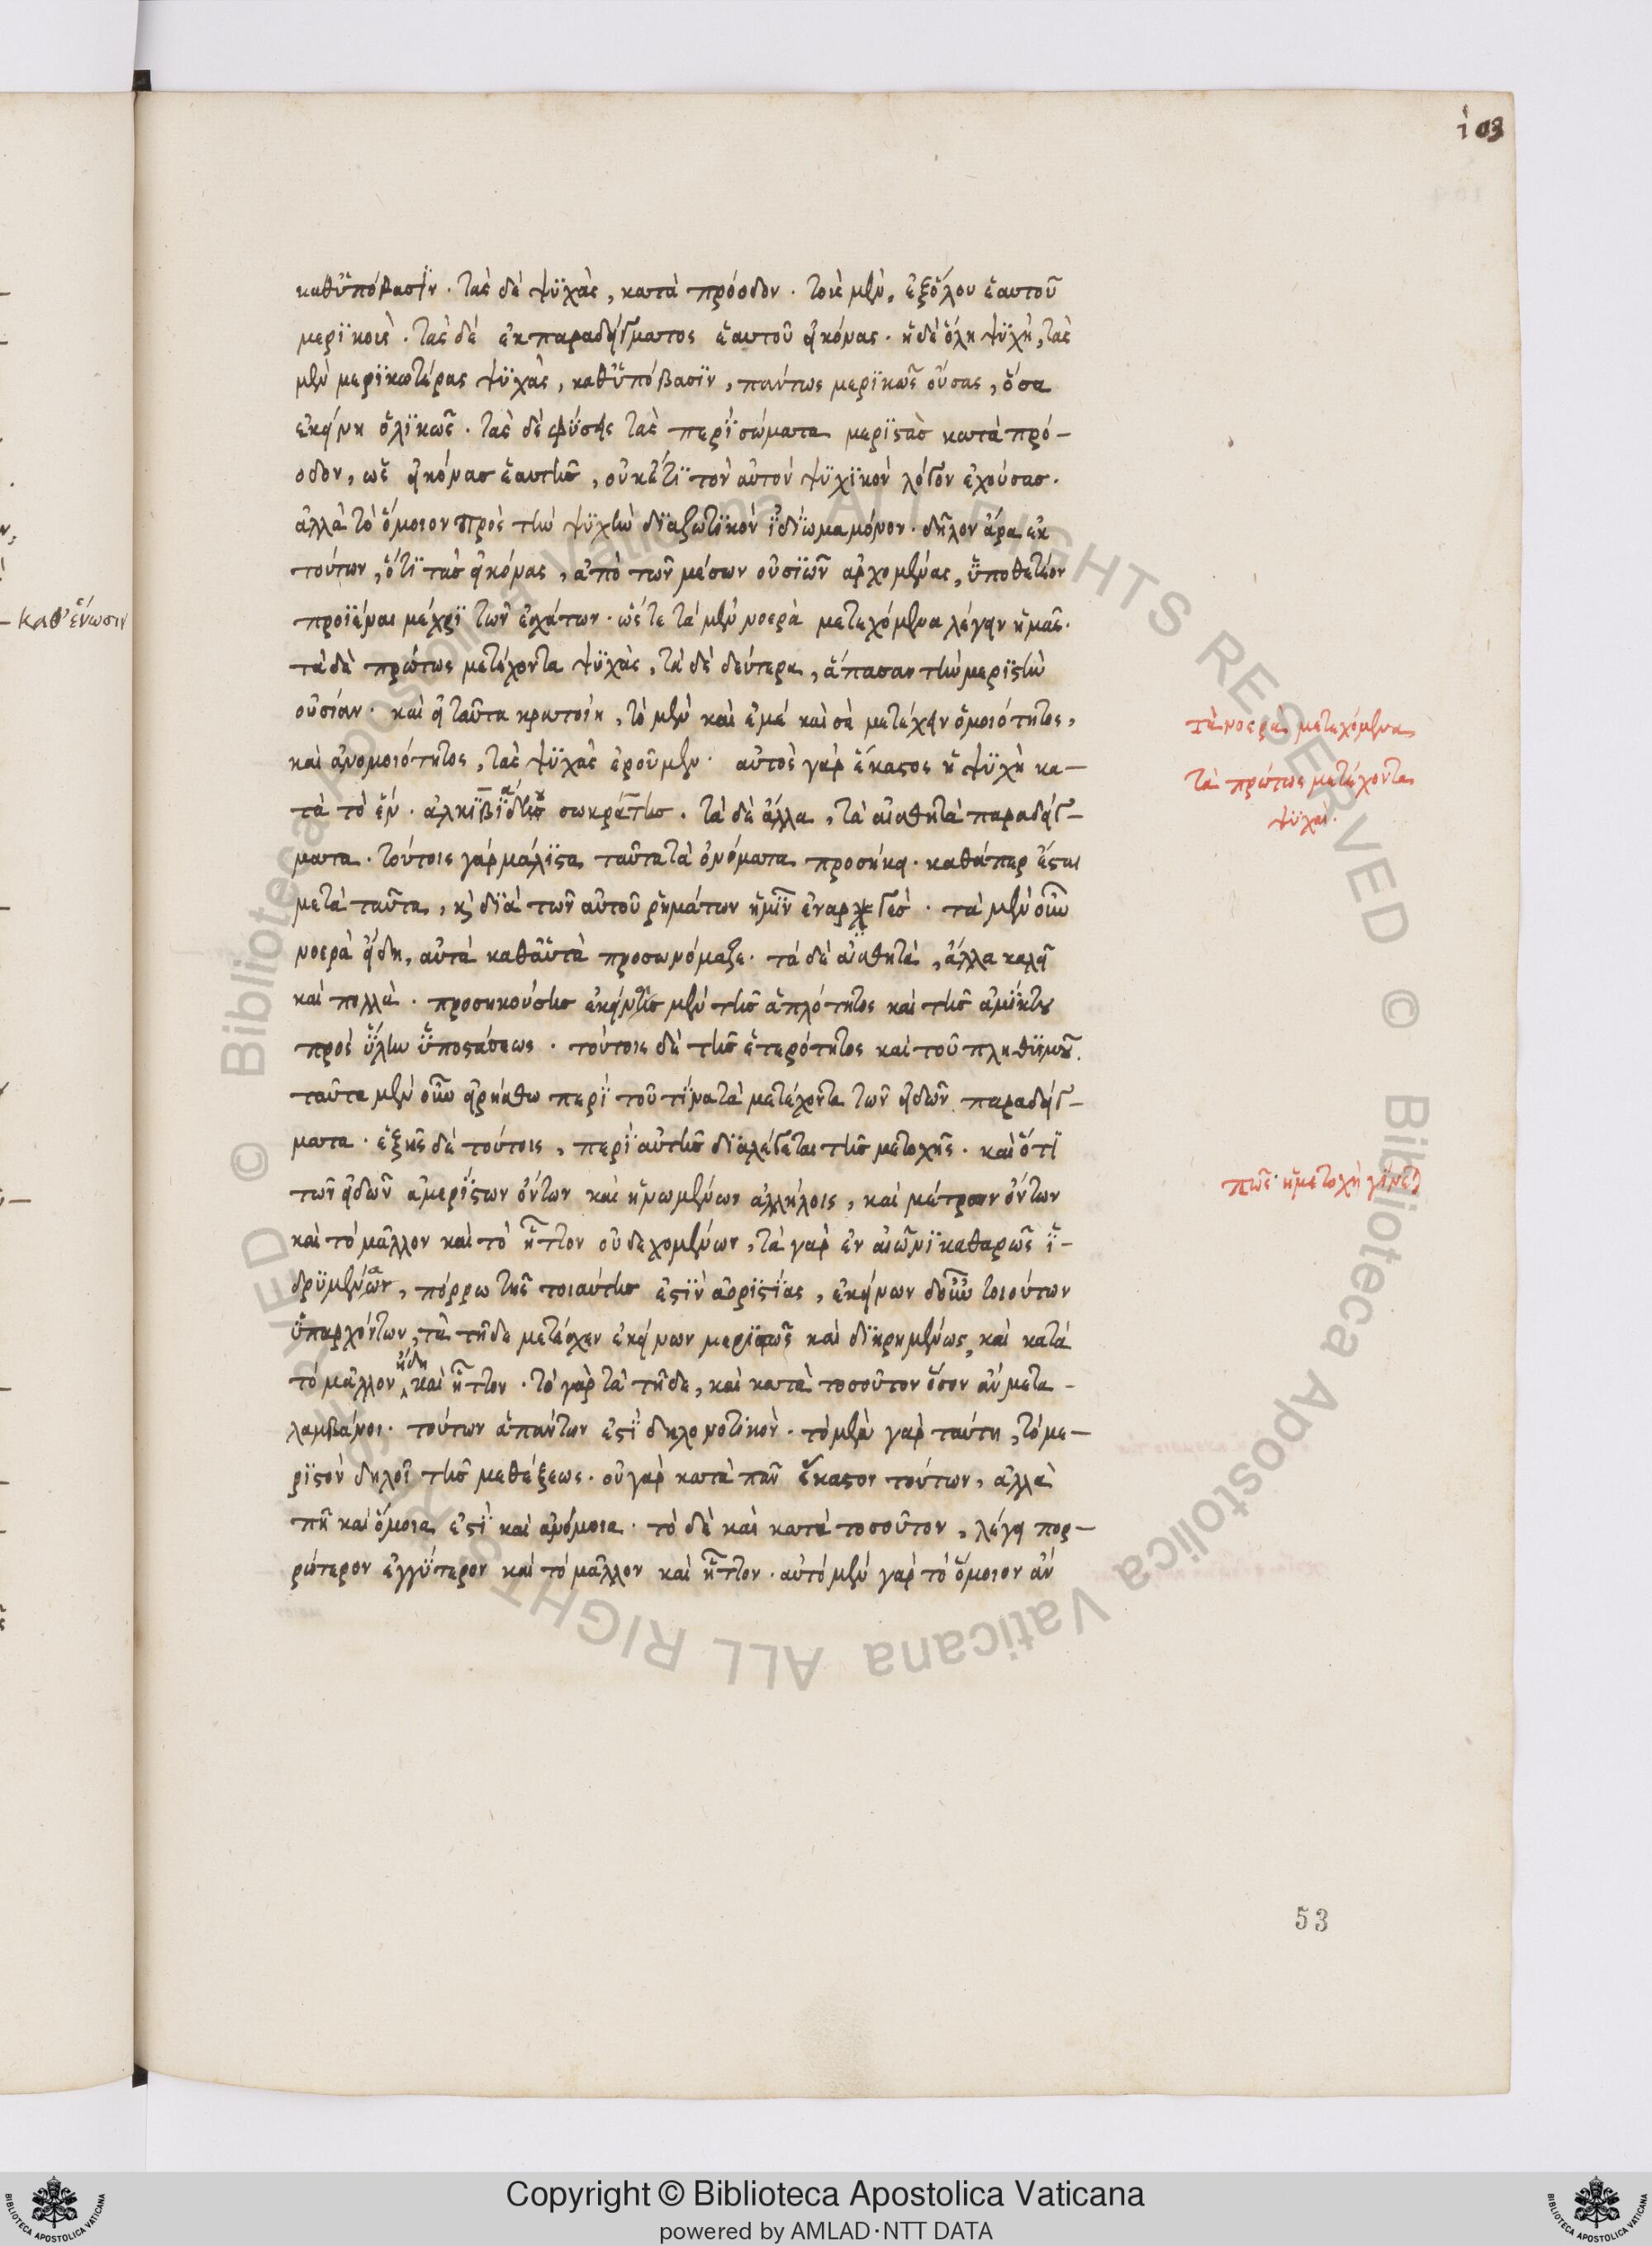 103
καθ' ὑπόβασιν · τὰς δὲ ψυχὰς, κατὰ πρόοδον · τοὺς μὲν, ἐξ ὅλου ἑαυτοῦ
μερικοὺς · τὰς δὲ ἐκ παραδείγματος ἑαυτοῦ εἰκόνας · ἡ δὲ ὅλη ψυχὴ, τὰς
μὲν μερικωτέρας ψυχὰς, καθ' ὑπόβασιν, πάντως μερικῶς οὔσας, ὅσα
ἐκείνη ὁλικῶς · τὰς δὲ φύσεις τὰς περὶ σώματα μεριστὰς κατὰ πρό-
οδον, ὡς εἰκόνας ἑαυτῆς, οὐκέτι τὸν αὐτὸν ψυχικὸν λόγον ἐχούσας ·
ἀλλὰ τὸ ὅμοιον πρὸς τὴν ψυχὴν διαζωτικὸν ἰδίωμα μόνον · δῆλον ἄρα ἐκ
τούτων, ὅτι τὰς εἰκόνας, ἀπὸ τῶν μέσων οὐσιῶν ἀρχομένας, ὑποθετέον
προϊέναι μέχρι τῶν ἐσχάτων · ὥστε τὰ μὲν νοερὰ μετεχόμενα λέγειν ἡμᾶς ·
τὰ δὲ πρώτως μετέχοντα ψυχὰς, τὰ δὲ δεύτερα, ἅπασαν τὴν μεριστὴν
οὐσίαν · καὶ εἰ ταῦτα κρατοίη, τὸ μὲν καὶ ἐμὲ καὶ σὲ μετέχειν ὁμοιότητος,
καὶ ἀνομοιότητος, τὰς ψυχὰς ἐροῦμεν · αὐτὸς γὰρ ἕκαστος ἡ ψυχὴ κα-
τὰ τὸ ἐν · ἀλκιβιάδου σωκράτης · τὰ δὲ ἄλλα, τὰ αἰσθητὰ παραδείγ-
ματα · τούτοις γὰρ μάλιστα ταῦτα τὰ ὀνόματα προσήκει · καθάπερ ἔσται
μετὰ ταῦτα, καὶ διὰ τῶν αὐτοῦ ῥημάτων ἡμῖν ἐναργές · τὰ μὲν οὖν
νοερὰ εἴδη, αὐτὰ καθ' αὑτὰ προσωνόμαζε · τὰ δὲ αἰσθητὰ, ἄλλα καλεῖ
καὶ πολλὰ · προσηκούσης ἐκείνης μὲν τῆς ἁπλότητος καὶ τῆς ἀμίκτου
πρὸς ὕλην ὑποστάσεως · τούτοις δὲ τῆς ἑτερότητος καὶ τοῦ πληθυσμοῦ.
ταῦτα μὲν οὖν εἰρήσθω περὶ τοῦ τίνα τὰ μετέχοντα τῶν εἰδῶν παραδείγ-
ματα · ἑξῆς δὲ τούτοις, περὶ αὐτῆς διαλέγεται τῆς μετοχῆς · καὶ ὅτι
τῶν εἰδῶν ἀμερίστων ὄντων καὶ ἡνωμένων ἀλλήλοις, καὶ μέτρων ὄντων
καὶ τὸ μᾶλλον καὶ τὸ ἧττον οὐ δεχομένων, τὰ γὰρ ἐν αἰῶνι καθαρῶς ἱ-
δρυμένα, πόρρω τῆς τοιαύτης ἐστὶν ἀοριστίας, ἐκείνων δ' οὖν τοιούτων
ὑπαρχόντων, τὰ τῇδε μετέσχεν ἐκείνων μεριστῶς καὶ διῃρημένως, καὶ κατὰ
τὸ μᾶλλον ἤδη καὶ ἧττον · τὸ γὰρ τὰ τῇδε, καὶ κατὰ τοσοῦτον ὅσον ἂν μετα-
λαμβάνοι · τούτων ἁπάντων ἐστὶ δηλονοτικὸν · τὸ μὲν γὰρ ταύτῃ, τὸ με-
ριστὸν δηλοῖ τῆς μεθέξεως · οὐ γὰρ κατὰ πᾶν ἕκαστον τούτων, ἀλλὰ
πῆ καὶ ὅμοια ἐστὶ καὶ ἀνόμοια · τὸ δὲ καὶ κατὰ τοσοῦτον, λέγει πορ-
ρώτερον ἐγγύτερον καὶ τὸ μᾶλλον καὶ ἧττον · αὐτὸ μὲν γὰρ τὸ ὅμοιον ἀν
καθ' ἕνωσιν
τὰ νοερὰ μετεχόμενα
τὰ πρώτως μετέχοντα
ψυχαί ·
πῶς ἡ μετοχὴ γίνεται
53
Copyright © Biblioteca Apostolica Vaticana
powered by AMLAD·NTT DATA
© Biblioteca Apostolica Vaticana ALL RIGHTS RESERVED